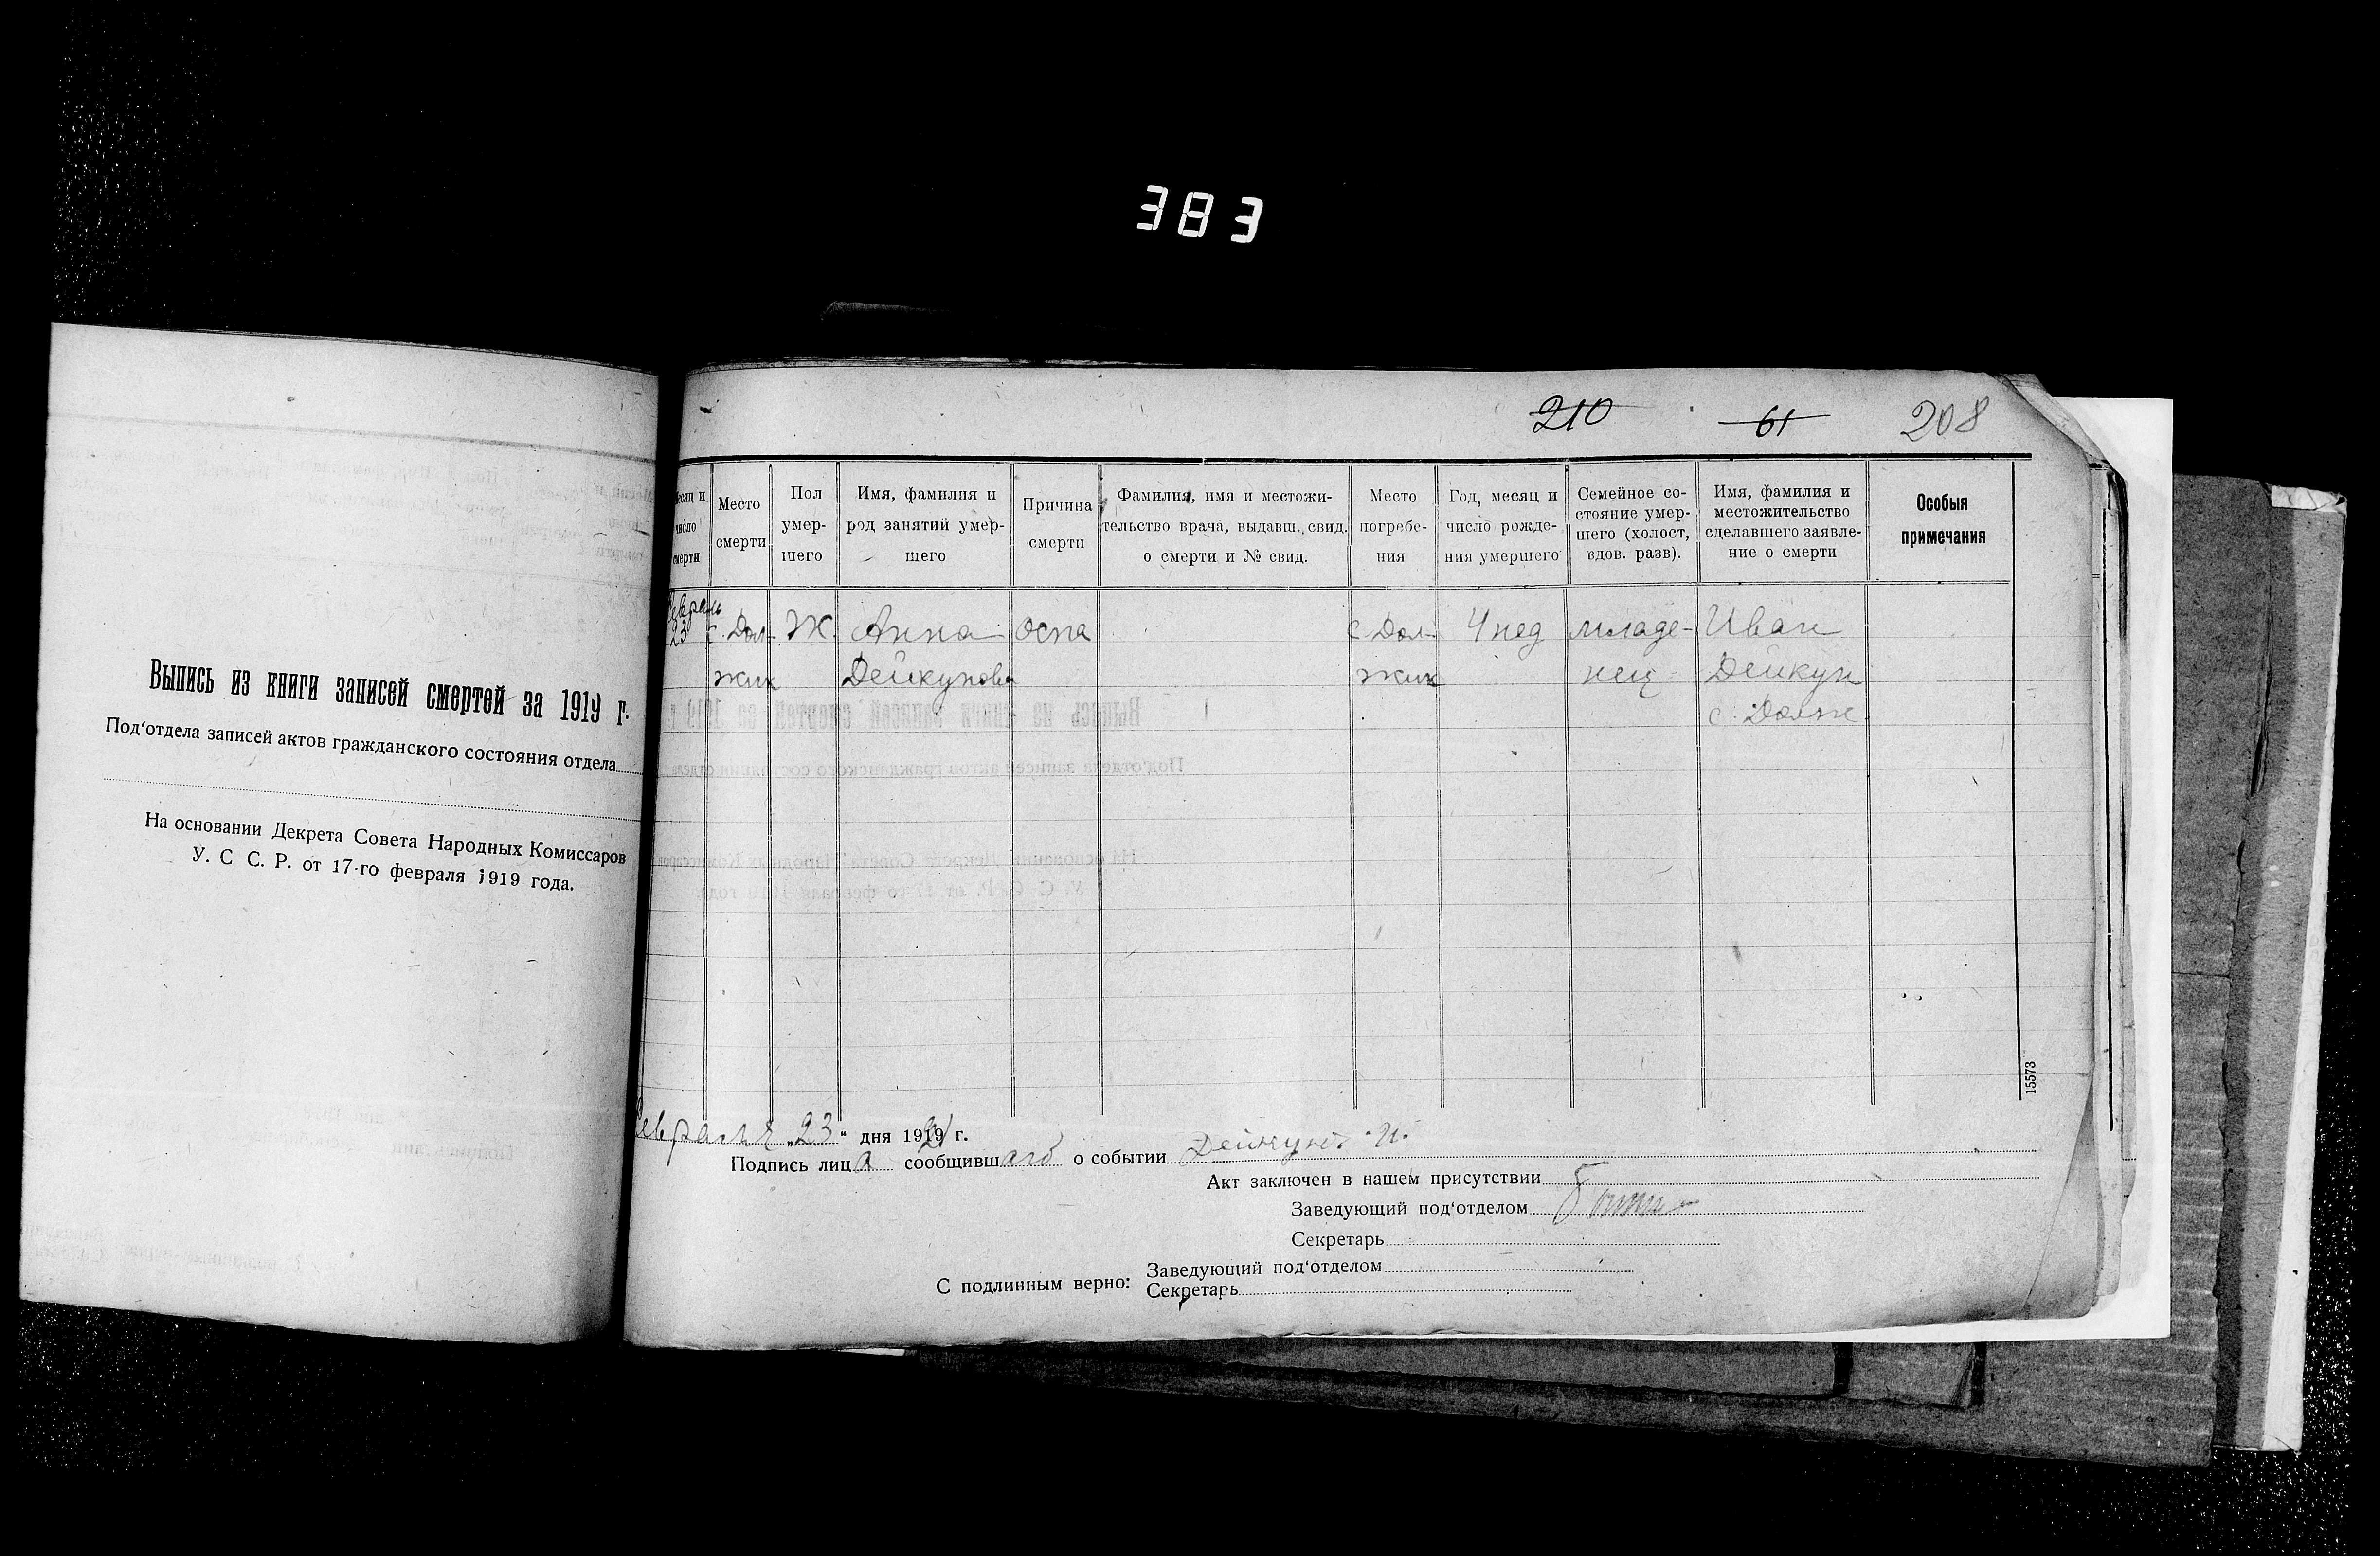 383
210 61 208
Выпись из книги записей смертей за 1919 г.
Под‘отдела записей актов гражданского состояния отдела
На основании Декрета Совета Народных Комиссаров
У. С С. Р. от 17-го февраля 1919 года.
Месяц и число смерти
Место смерти
Пол умер-шего
Имя, фамилия и род занятий умер-шего
Причина смерти
Фамилия, имя и местожи-тельство врача, выдавш. свид. о смерти и № свид.
Место погребе-ния
Год, месяц и число рожде-ния умершего
Семейное со-стояние умер-шего (холост, вдов. разв).
Имя, фамилия и местожительство сделавшего заявле-ние о смерти
Особыя примечания
Февраль
23 с. Дол- Ж. Анна оспа с. Дол- 4 нед младе- Иван
жик Дейкунова жик нец Дейкун
с. Долж.
15573
Февраля „23“ дня 1921 г.
Подпись лица сообщившаго о событии Дейкунъ И.
Акт заключен в нашем присутствии
Заведующий под‘отделом
Секретарь
С подлинным верно: Заведующий под‘отделом
Секретарь